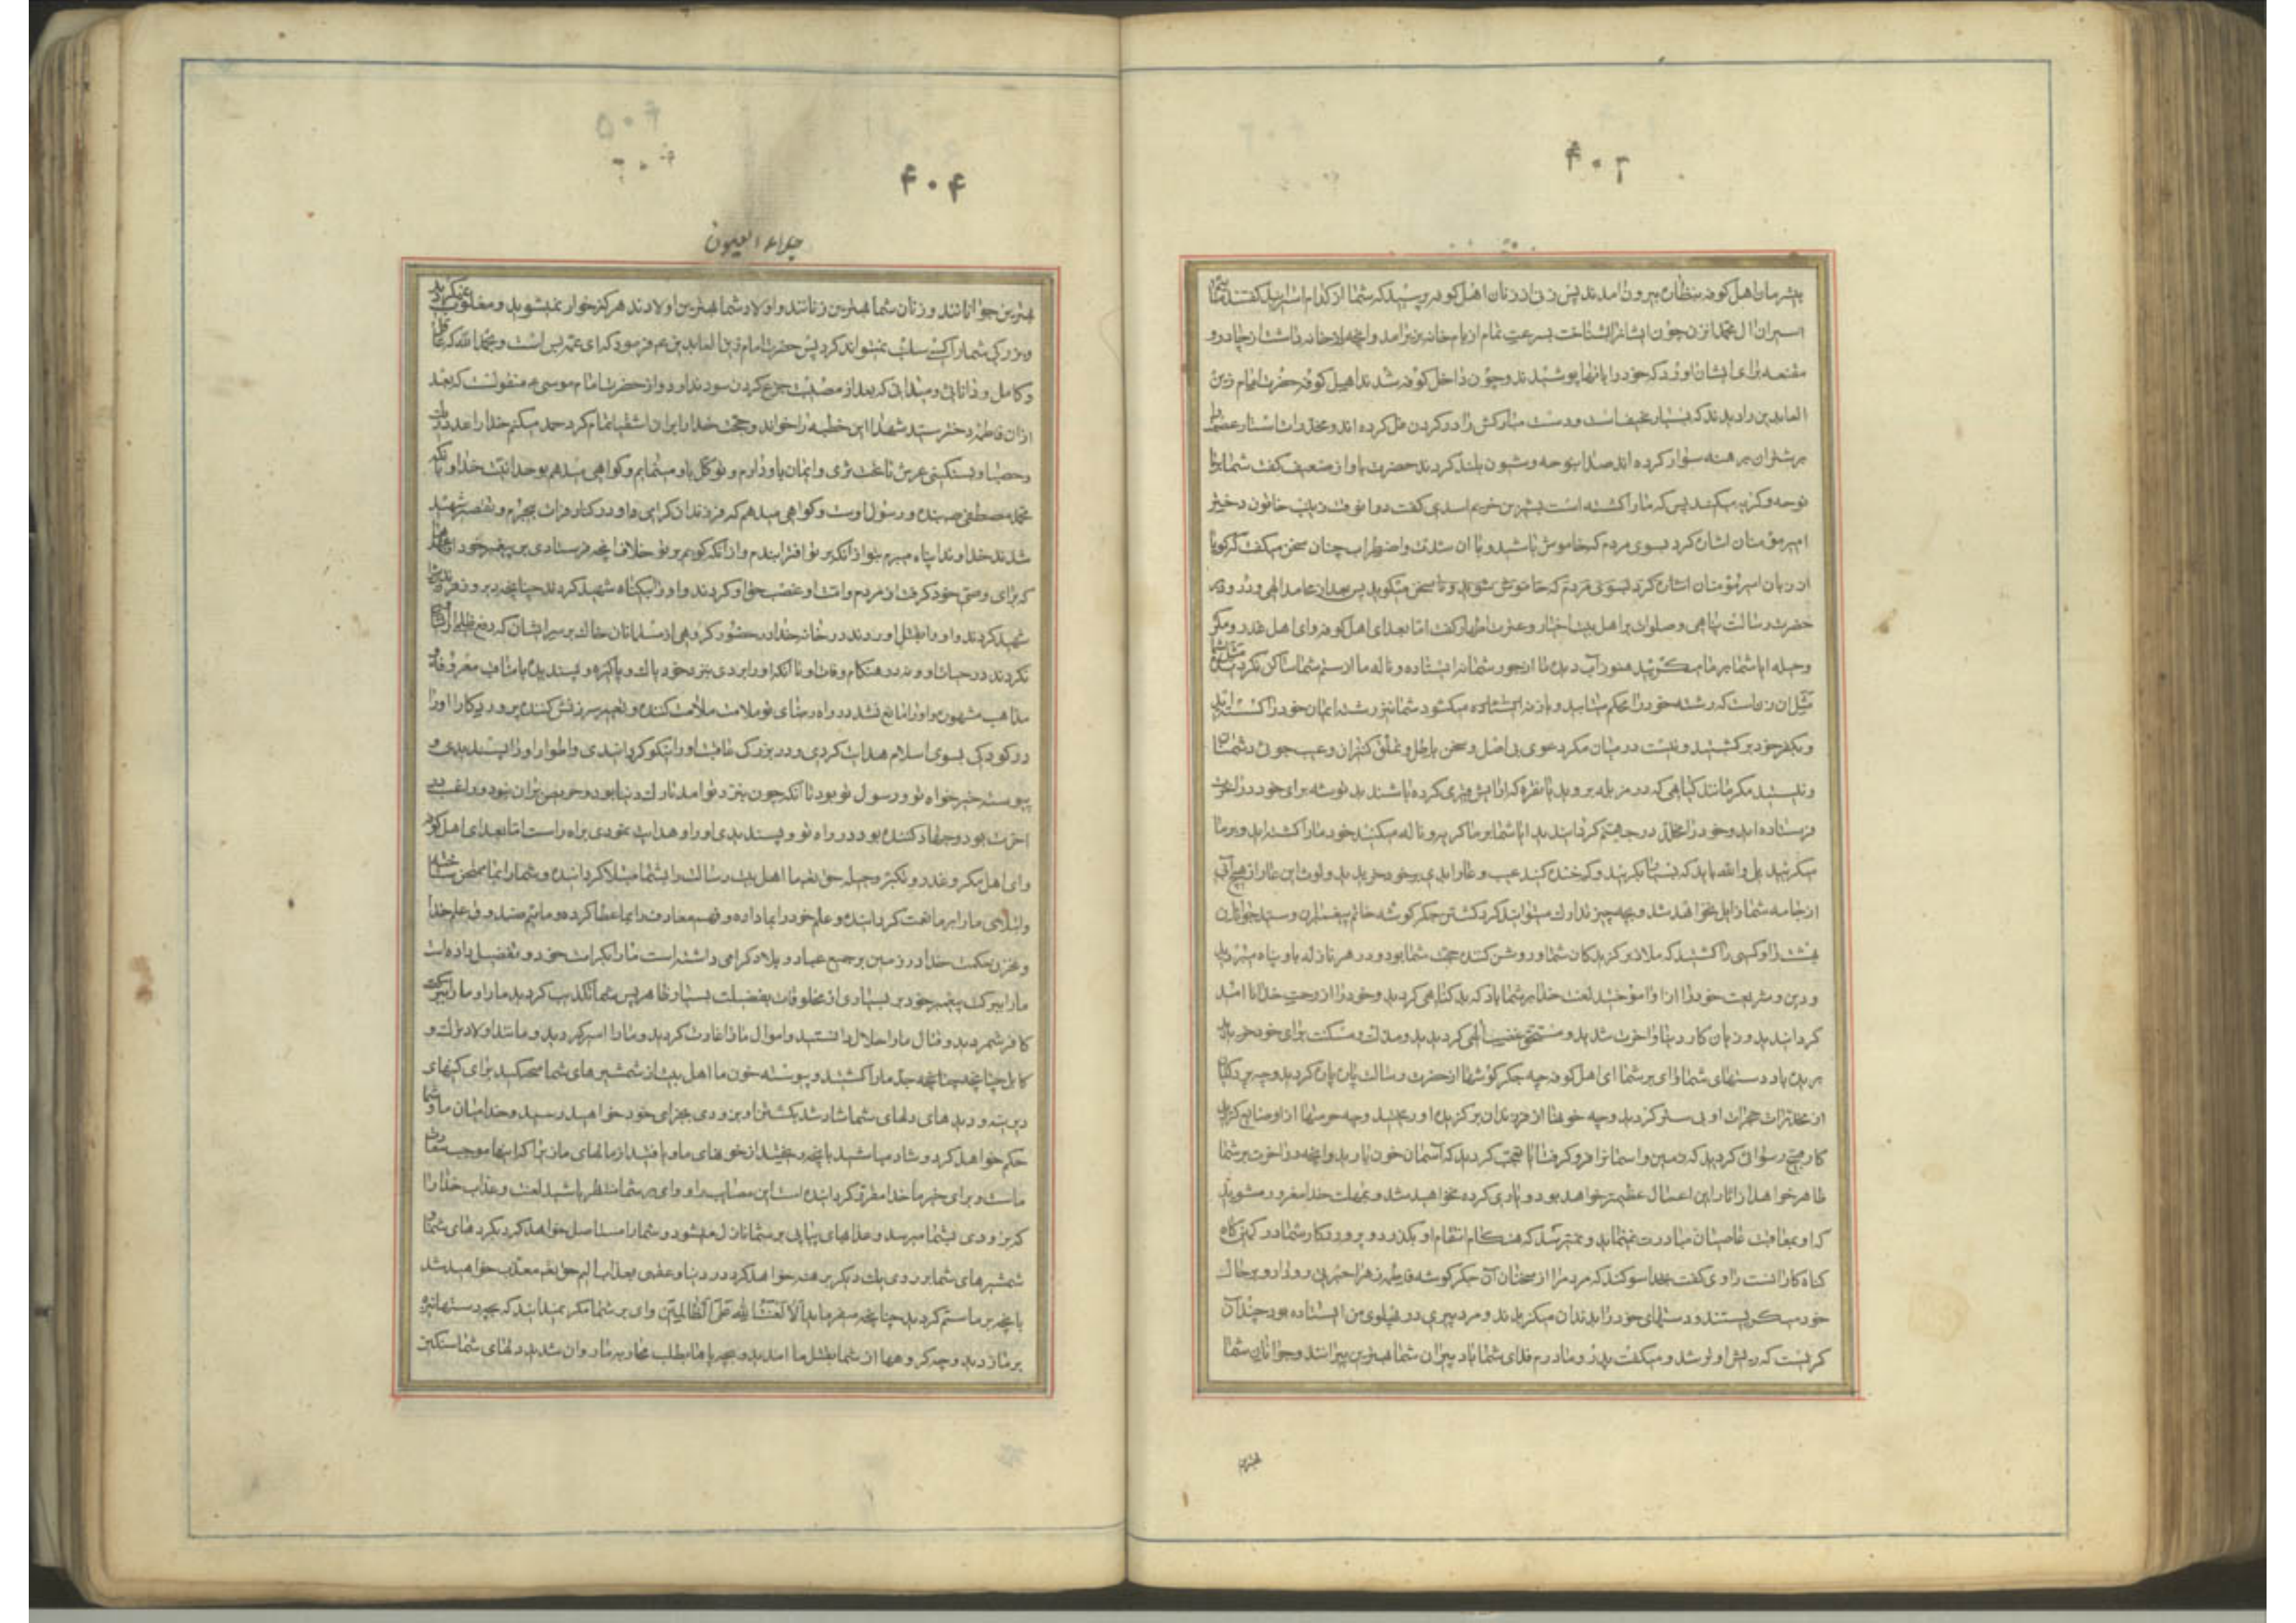 ۴۰۳
بیشرمان اهل کوفه بنظاره بیرون آمدند پس زنی از زنان اهل کوفه پرسید که شما از کدام اسیرانید گفتند ما
اسیران آل محمدیم آنزن چون ایشانرا شناخت بسرعت تمام از بام خانه بزیر آمد و آنچه در خانه داشت از چادر و
مقنعه برای ایشان آورد که خود را بآنها پوشیدند و چون داخل کوفه شدند اهل کوفه حضرت امام زین
العابدین را دیدند که بسیار نحیف است و دست مبارکش را در گردن غل کرده اند و مخدرات استار عصمت را
بر شتران برهنه سوار کرده اند صدا بنوحه و شیون بلند کردند حضرت باواز ضعیف گفت شما بر ما
نوحه و گریه میکنید پس که ما را کشته است بشیر بن خریم اسدی گفت در آنوقت زینب خاتون دختر
امیر مؤمنان اشاره کرد بسوی مردم که خاموش باشید و با آن شدت و اضطراب چنان سخن میگفت که گویا
از زبان امیر مؤمنان اشاره کرد بسوی مردم که خاموش شوید و سخن میگوید پس بعد از محامد الهی و درود بر
حضرت رسالت پناهی و صلوات بر اهل بیت اخیار و عترت اطهار گفت اما بعد ای اهل کوفه و ای اهل غدر و مکر
و حیله آیا شما بر ما میگریید هنوز آب دیده ما از جور شما نه ایستاده و ناله ما از ستم شما ساکن نگردیده مثل شما
مثل آن زن است که رشته خود را محکم میتابید و باز میگشود شما نیز رشته ایمان خود را گسستید
و بکفر خود برگشتید و نیست در میان مگر دعوی بی اصل و سخن باطل و تملق کنیزان و عیب جوئی دشمنان
و نیستید مگر مانند گیاهی که در مزبله بروید یا نقره که آرایش قبری کرده باشند بد توشه برای خود در آخرت
فرستاده اید و خود را مخلد در جهنم گردانیدید آیا شما بر ما گریه و ناله میکنید خود ما را کشته اید و بر ما
میگریید بلی والله باید که بسیار بگریید و کم خنده کنید عیب و عار ابدی بر خود خریدید و لوث این عار از هیچ آبی
از جامه شما زایل نخواهد شد و بچه چیز تدارک میتوانید کرد کشتن جگر گوشه خاتم پیغمبران و سید جوانان
بهشت را و کسی را کشتید که ملاذ برگزیدگان شما و روشن کننده حجت شما بود و در هر نازله باو پناه میبردید
و دین و شریعت خود را از او آموختید لعنت خدا بر شما باد که بد گناهی کردید و خود را از رحمت خدا ناامید
گردانیدید و زیان کار دنیا و آخرت شدید و مستحق غضب الهی گردیدید و مذلت و مسکنت برای خود خریدید
بریده باد دستهای شما وای بر شما ای اهل کوفه چه جگر گوشها از حضرت رسالت پاره پاره کردید و چه پردگیان
از مخدرات حجرات او بی ستر کردید و چه خونها از فرزندان برگزیده او ریختید و چه حرمتها از او ضایع کردید
کار قبیح رسوائی کردید که زمین و آسمانرا فرو گرفت آیا تعجب کردید که آسمان خون بارید و آنچه در آخرت بر شما
ظاهر خواهد از آثار این اعمال عظیمتر خواهد بود و یاری کرده نخواهید شد و بمهلت خدا مغرور مشوید
که او بمعاقبت عاصیان مبادرت نمینماید و نمیترسد که هنگام انتقام او بگذرد و پروردگار شما در کمین گاه
گناه کارانست راوی گفت بخدا سوگند که مردم را از سخنان آن جگر گوشه فاطمه زهرا حیران روداد و بر حال
خود میگریستند و دستهای خود را بدندان میگزیدند و مرد پیری در پهلوی من ایستاده بود چندان
گریست که ریش او تر شد و میگفت پدر و مادرم فدای شما باد پیران شما بهترین پیرانند و جوانان شما
بهترین
۴۰۴
جلاء العیون
بهترین جوانانند و زنان شما بهترین زنانند و اولاد شما بهترین اولادند هرگز خوار نمیشوید و مغلوب نمیگردید
و بزرگی شما را کسی سلب نمیتواند کرد پس حضرت امام زین العابدین ع فرمود که ای عمه بس است و بحمد الله که عاقل
و کامل و دانائی و میدانی که بعد از مصیبت جزع کردن سود ندارد و از حضرت امام موسی ع منقولست که بعد
از آن فاطمه دختر سید شهدا این خطبه را خواند و حجت خدا را بر آن اشقیا تمام کرد حمد میکنم خدا را عدد ریک
و حصیا و بسنگینی عرش تا تحت ثری و ایمان باو دارم و توکل باو مینمایم و گواهی میدهم بوحدانیت خدا و بآنکه
محمد مصطفی ص بنده و رسول اوست و گواهی میدهم که فرزندان گرامی او را در کنار فرات بیجرم و تقصیر شهید
شدند خداوندا پناه میبرم بتو از آنکه بر تو افترا بندم و از آنکه گویم بر تو خلاف آنچه فرستادی بر پیغمبر خود از عهدها
که برای وصی خود گرفت از مردم و امت او غصب حق او کردند و او را بیگناه شهید کردند چنانچه دیروز فرزندش را
شهید کردند و او را بقتل آوردند در خانه خدا در حضور گروهی از مسلمانان خاک بر سر ایشان که دفع ظلم از او
نکردند در حیات او و نه در هنگام وفات او تا آنکه او را بردی بنزد خود پاک و پاکیزه و پسندیده با مناقب معروفه و
مذاهب مشهوره و او را مانع نشد در راه رضای تو ملامت ملامت کننده و تعییر سرزنش کننده پروردگارا او را
در کودکی بسوی اسلام هدایت کردی و در بزرگی عاقبت او را نیکو گردانیدی و اطوار او را پسندیدی و
پیوسته خیر خواه تو و رسول تو بود تا آنکه چون بنزد تو آمد تارک دنیا بود و حریص بر آن نبود و راغب در
آخرت بود و جهاد کننده بود در راه تو و پسندیدی او را و هدایت نمودی براه راست اما بعد ای اهل کوفه
و ای اهل مکر و غدر و تکبر و حیله حق تعالی ما اهل بیت رسالت را بشما مبتلا گردانیده و شما را بما ممتحن ساخته
و ابتلای ما را بر ما نعمت گردانیده و علم خود را بما داده و فهم معارف را بما عطا کرده و مائیم صندوق علم خدا
و مخزن حکمت خدا در زمین بر جمیع عباد و بلاد گرامی داشته است ما را بکرامت خود و تفضیل داده است
ما را ببرکت پیغمبر خود بر بسیاری از مخلوقات بفضیلت بسیار ظاهر پس شما تکذیب کردید ما را و ما را
کافر شمردید و قتال ما را حلال دانستید و اموال ما را غارت کردید و ما را اسیر کردید و مانند اولاد ترک و
کابل چنانچه جد ما را کشتید و پیوسته خون ما اهل بیت از شمشیرهای شما میچکید برای کینهای
دیرینه و دیدهای دلهای شما شاد شد بکشتن او بزودی بجزای خود خواهید رسید و خدا میان ما و شما
حکم خواهد کرد و شاد مباشید بآنچه ریختید از خونهای ما و یافتید از مالهای ما زیرا که اینها موجب رفعت
ماست و برای خیر ما خدا مقرر گردانیده است این مصایب را و وای بر شما منتظر باشید لعنت و عذاب خدا را
که بزودی بشما میرسد و عذابهای پیاپی بر شما نازل میشود و شما را مستاصل خواهد کرد بکردهای شما و
شمشیرهای شما بر روی یک دیگر برهنه خواهد کرد در دنیا و عقبی بعذاب الیم حق تعالی معذب خواهید شد
بآنچه بر ما ستم کردید چنانچه میفرماید ألا لعنة الله علی الظالمین وای بر شما مگر نمیدانید که بچه دستها نیزه
بر ما زدید و چه گروهها از شما بقتل ما آمدید و بچه پاها بطلب محاربه ما روان شدید دلهای شما سنگین